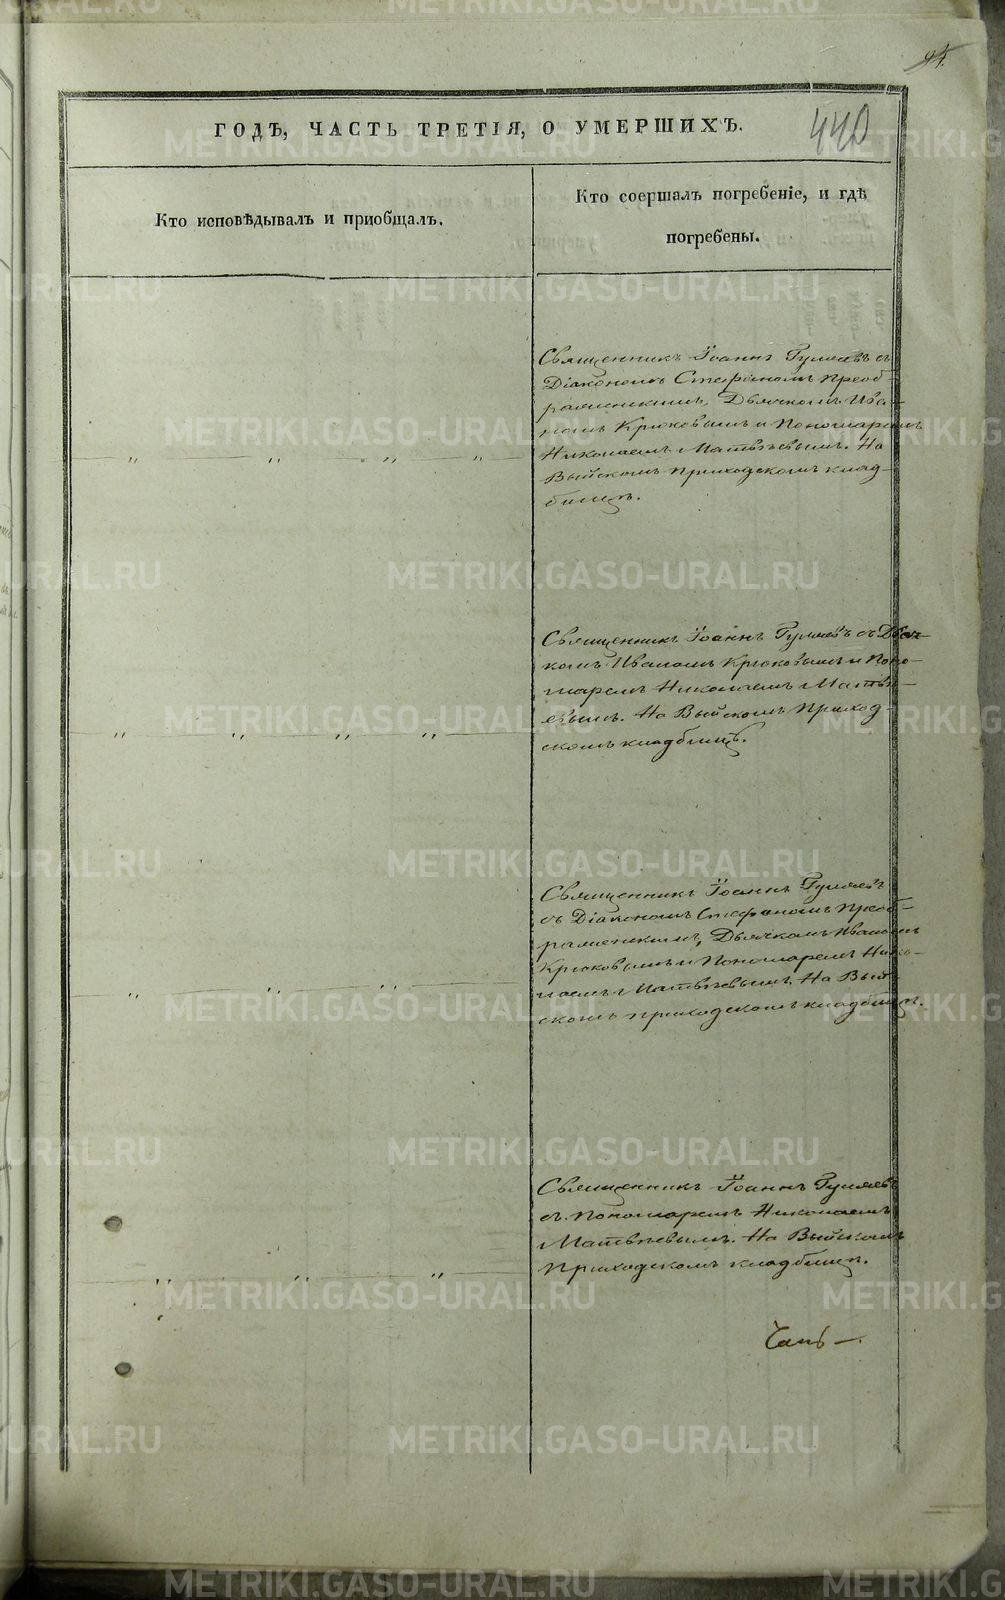 94.
440
ГОДѢ, ЧАСТЬ ТРЕТІЯ, О УМЕРШИХЪ.
Кто исповѣдывалъ и пріобщалъ.
Кто соершалъ погребеніе, и гдѣ
погребены.
Священникъ Іоаннъ Гуляевъ съ
Діакономъ Стефаномъ Преоб-
раженскимъ, Дьячкомъ Ива-
номъ Крюковымъ и Пономаремъ
Николаемъ Матвѣевымъ. На
Выйскомъ приходскомъ клад-
бищѣ.
Священникъ Іоаннъ Гуляевъ съ Дьяч-
комъ Иваномъ Крюковымъ и Поно-
маремъ Николаемъ Матвѣ-
евымъ. На Выйскомъ Приход-
скомъ кладбищѣ.
Священникъ Іоаннъ Гуляевъ
съ Діакономъ Стефаномъ Преоб-
раженскимъ, Дьячкомъ Иваномъ
Крюковымъ и Пономаремъ Нико-
лаемъ Матвѣевымъ. На Вый-
скомъ приходскомъ кладбищѣ.
Священникъ Іоаннъ Гуляевъ
съ Пономаремъ Николаемъ
Матвѣевымъ. На Выйскомъ
Приходскомъ кладбищѣ.
METRIKI.GASO-URAL.RU